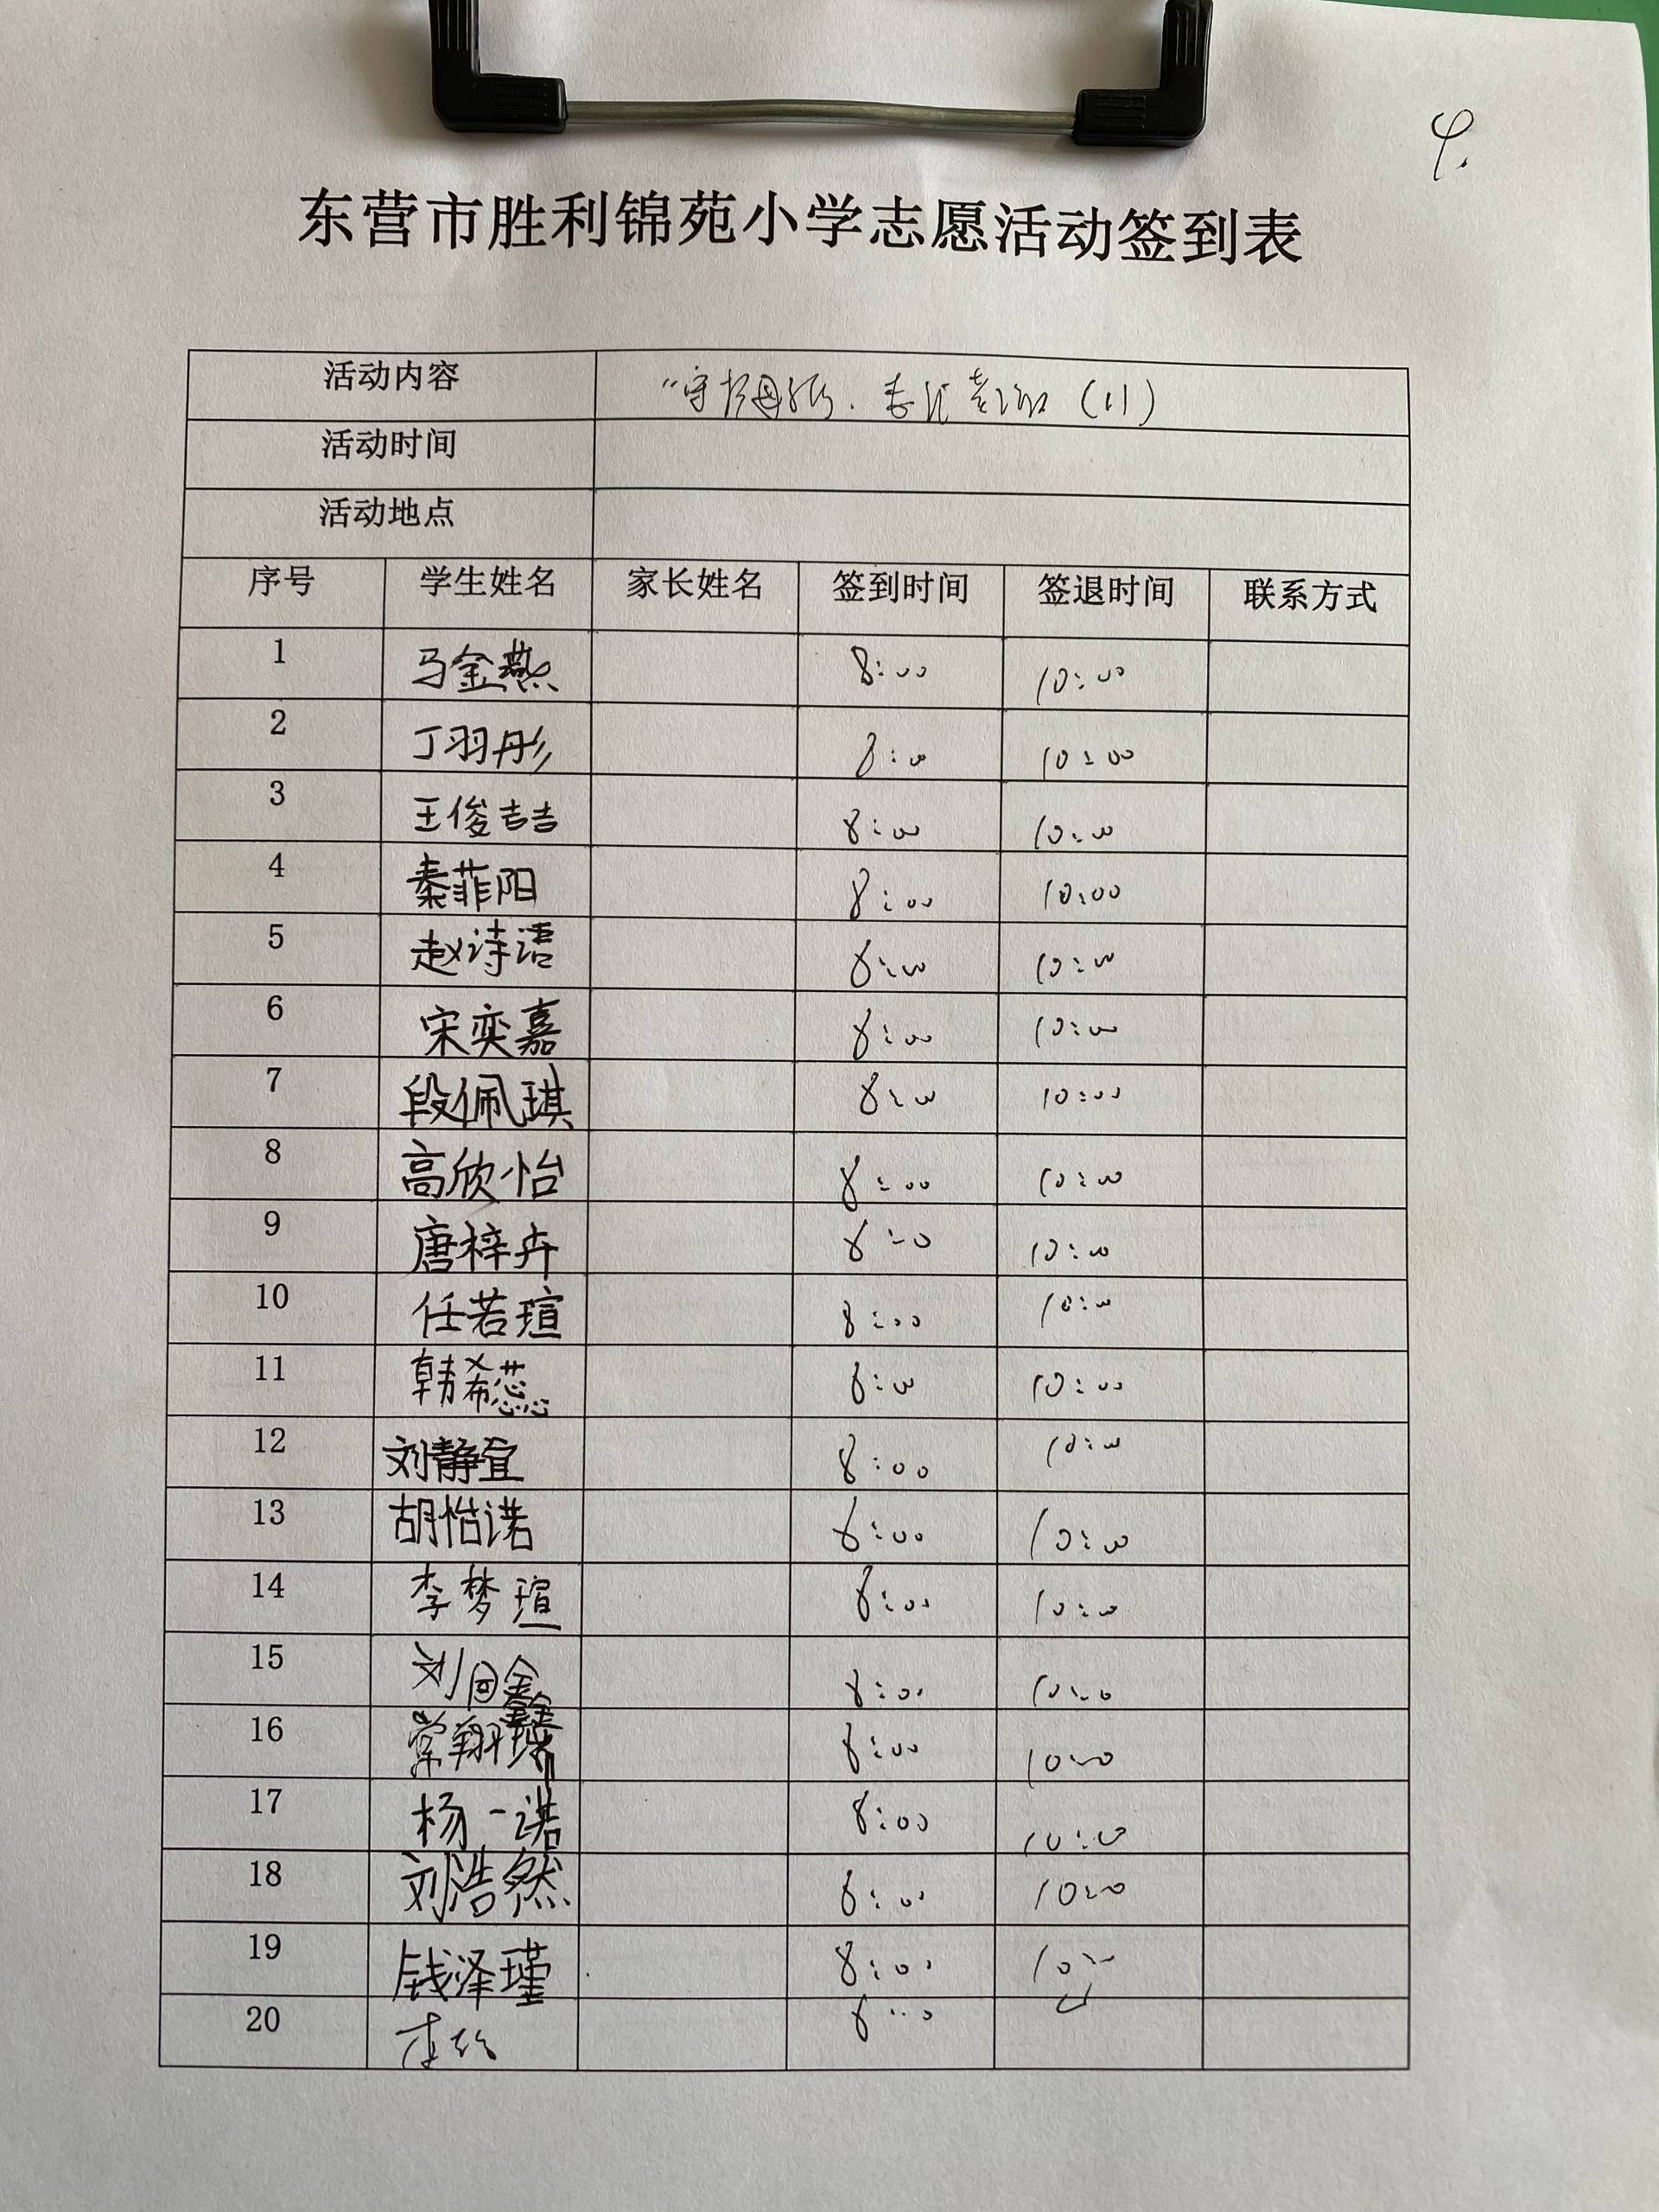 4.
东营市胜利锦苑小学志愿活动签到表
活动内容 (11)
活动时间
活动地点
序号 学生姓名 家长姓名 签到时间 签退时间 联系方式
1 马金燕 8:00 10:00
2 丁羽彤 8:00 10:00
3 王俊喆 8:00 10:00
4 秦菲阳 8:00 10:00
5 赵诗语 8:00 10:00
6 宋奕嘉 8:00 10:00
7 段佩琪 8:00 10:00
8 高欣怡 8:00 10:00
9 唐梓卉 8:00 10:00
10 任若瑄 8:00 10:00
11 韩希蕊 8:00 10:00
12 刘静宜 8:00 10:00
13 胡怡诺 8:00 10:00
14 李梦瑄 8:00 10:00
15 刘 鑫 8:00 10:00
16 常翔 8:00 10:00
17 杨一诺 8:00 10:00
18 刘浩然 8:00 10:00
19 钱泽瑾 8:00 10:00
20 8:00